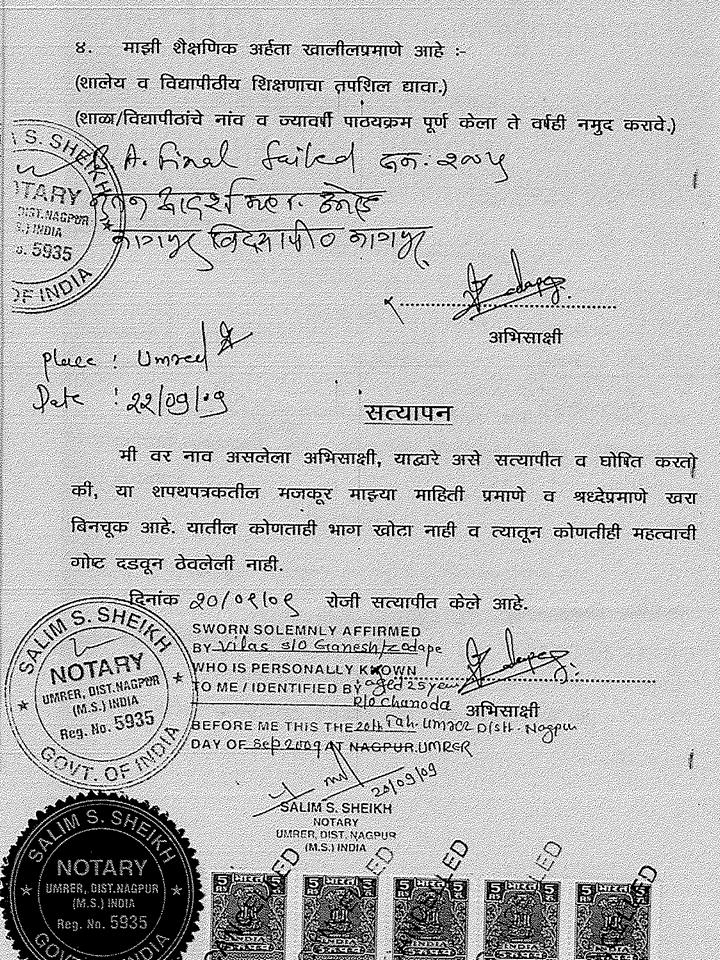 ४. माझी शैक्षणिक अर्हता खालीलप्रमाणे आहे :-
(शालेय व विद्यापीठीय शिक्षणाचा तपशिल द्यावा.)
(शाळा/विद्यापीठांचे नांव व ज्यावर्षी पाठयक्रम पूर्ण केला ते वर्षही नमुद करावे.)
B. A. Final Failed सन: २००५
नूतन आदर्श महा. उमरेड
नागपूर विद्यापीठ नागपूर
S. SHEIKH
NOTARY
DIST.NAGPUR
S.) INDIA
5935
OF INDIA
अभिसाक्षी
place : Umred
Date : २२/०९/०९
सत्यापन
मी वर नाव असलेला अभिसाक्षी, याद्वारे असे सत्यापीत व घोषित करतो
की, या शपथपत्रकतील मजकूर माझ्या माहिती प्रमाणे व श्रध्देप्रमाणे खरा
बिनचूक आहे. यातील कोणताही भाग खोटा नाही व त्यातून कोणतीही महत्वाची
गोष्ट दडवून ठेवलेली नाही.
दिनांक २०/०९/०९ रोजी सत्यापीत केले आहे.
SALIM S. SHEIKH
NOTARY
UMRER, DIST.NAGPUR
(M.S.) INDIA
Reg. No. 5935
GOVT. OF INDIA
SWORN SOLEMNLY AFFIRMED
BY Vilas s/o Ganesh Zodape
WHO IS PERSONALLY KNOWN
TO ME / IDENTIFIED BY aged 25 year
R/o Chanoda
अभिसाक्षी
BEFORE ME THIS THE 20th Tah. Umrer Distt. Nagpur
DAY OF Sep 2009 AT NAGPUR.UMRER
20/09/09
SALIM S. SHEIKH
NOTARY
UMRER, DIST. NAGPUR
(M.S.) INDIA
SALIM S. SHEIKH
NOTARY
UMRER, DIST.NAGPUR
(M.S.) INDIA
Reg. No. 5935
GOVT. OF INDIA
5 भारत 5 INDIA
5 भारत 5 INDIA
5 भारत 5 INDIA
5 भारत 5 INDIA
5 भारत 5 INDIA